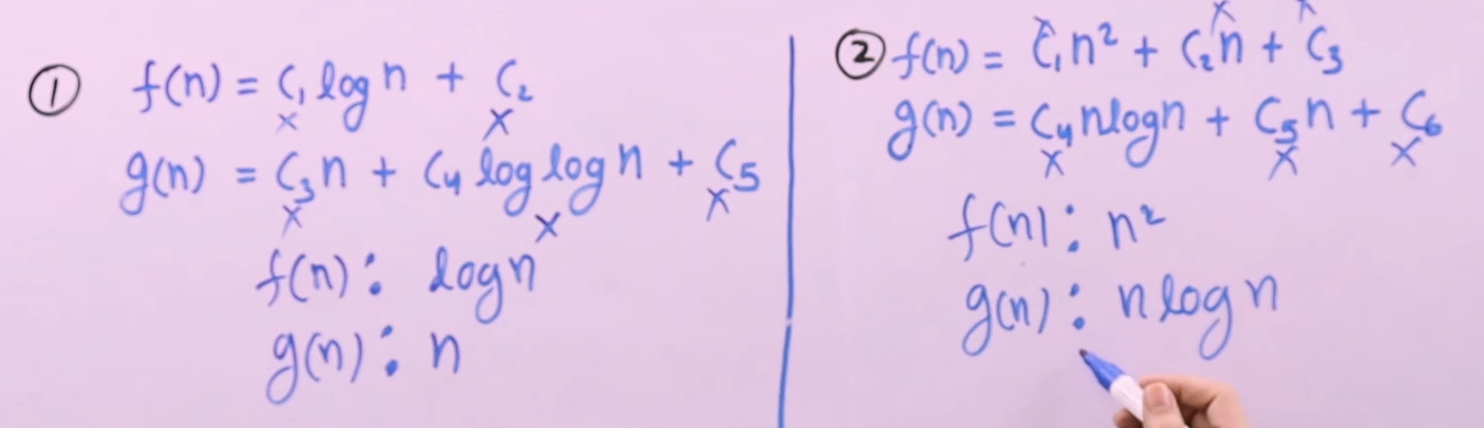 ① f(n) = C₁ log n + C₂
x x
g(n) = C₃n + C₄ log log n + C₅
x x x
f(n) : log n
g(n) : n
② f(n) = C₁n² + C₂n + C₃
x x x
g(n) = C₄nlogn + C₅n + C₆
x x x
f(n) : n²
g(n) : n log n